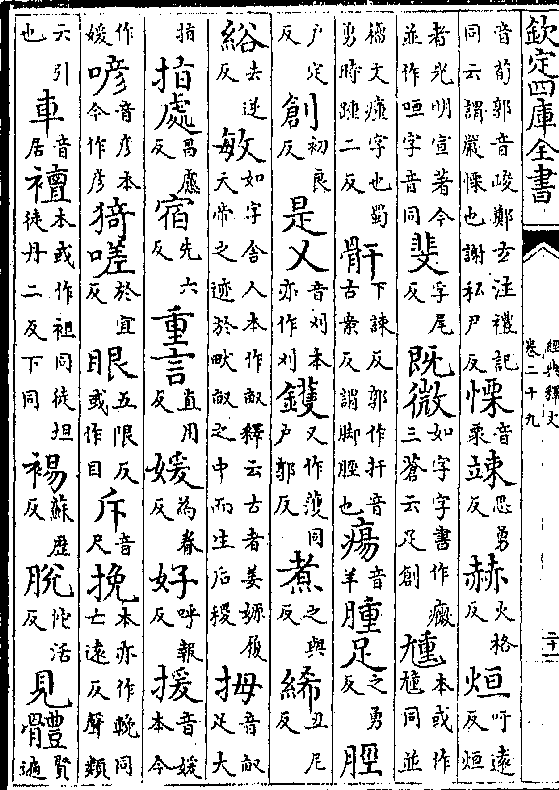 欽定四庫全書
經典釋文
卷二十九
音荀郭音峻鄭玄注禮記同云謂嚴慄也謝私尹反慄音栗竦息勇反赫火格反烜吁遠反烜
者光明宣著今並作咺字音同斐孚尾反既微如字字書作癓三蒼云足創尰本或作尰同並
籀文瘇字也蜀勇時踵二反骭下諫反郭作扞音古案反謂脚脛也瘍音羊腫足之勇反脛
戶定反創初良反是乂音刈本亦作刈鑊又作濩同戶郭反煮之與反絺丑尼反
綌去逆反敏如字舍人本作畝釋云古者姜嫄履天帝之迹於畎畝之中而生后稷拇音畝足大
指拍處昌慮反宿先六反重言直用反媛為眷反好呼報反援音媛本今
作媛喭音彥本今作彥猗嗟於宜反眼五限反或作目斥音尺挽本亦作輓同亡遠反聲類
云引也車音居襢本或作袒同徒坦徒丹二反下同裼蘇歷反脫佗活反見體賢遍